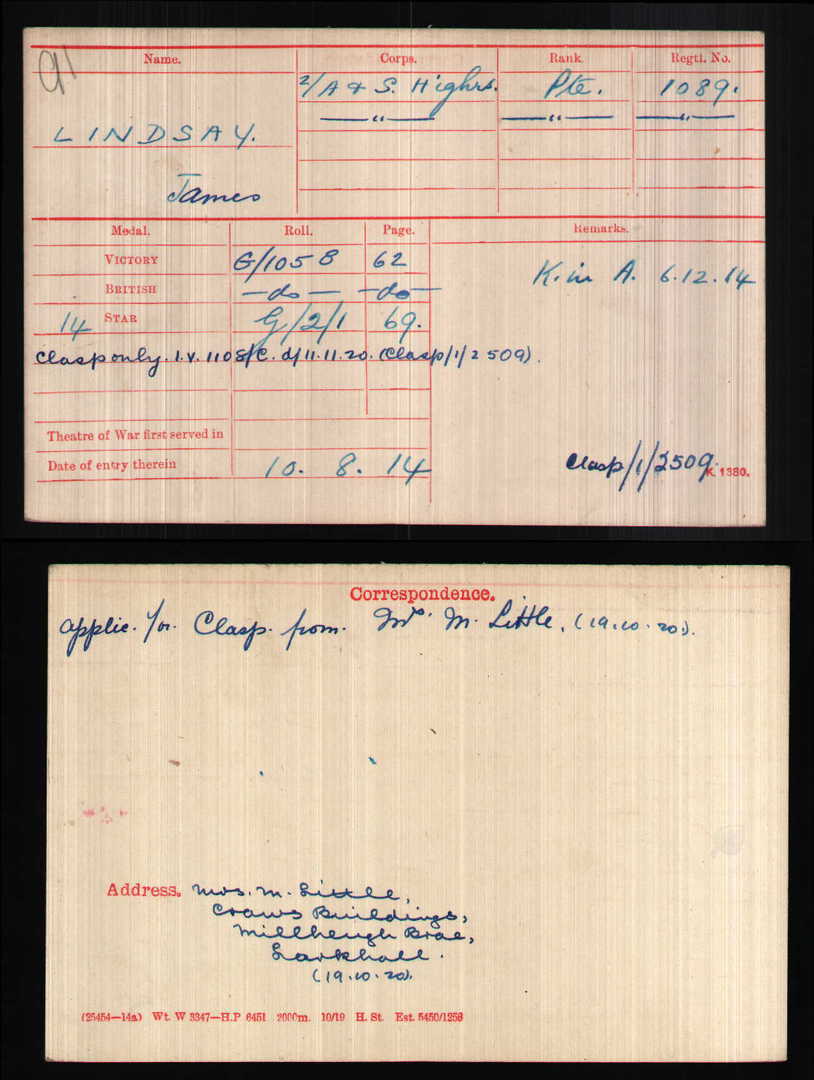 91
Name. Corps. Rank. Regtl. No.
2/A & S. Highrs. Pte. 1089.
— " — — " — — " —
LINDSAY.
James
Medal. Roll. Page. Remarks.
VICTORY G/105 B 62 K. in A. 6.12.14
BRITISH —do— —do—
14 STAR G/2/1 69.
Clasp only. I.V. 1108/C. d/11.11.20. (Clasp/1/2509).
Theatre of War first served in
Date of entry therein 10. 8. 14
Clasp/1/2509.
K. 1380.
Correspondence.
Applic. for Clasp. from. Mrs. M. Little. (19.10.20).
Address. Mrs. M. Little,
Craws Buildings,
Millheugh Brae,
Larkhall.
(19.10.20).
(25454—14a) Wt. W 3347—H.P 6451 2000m. 10/19 H. St. Est. 5450/1256